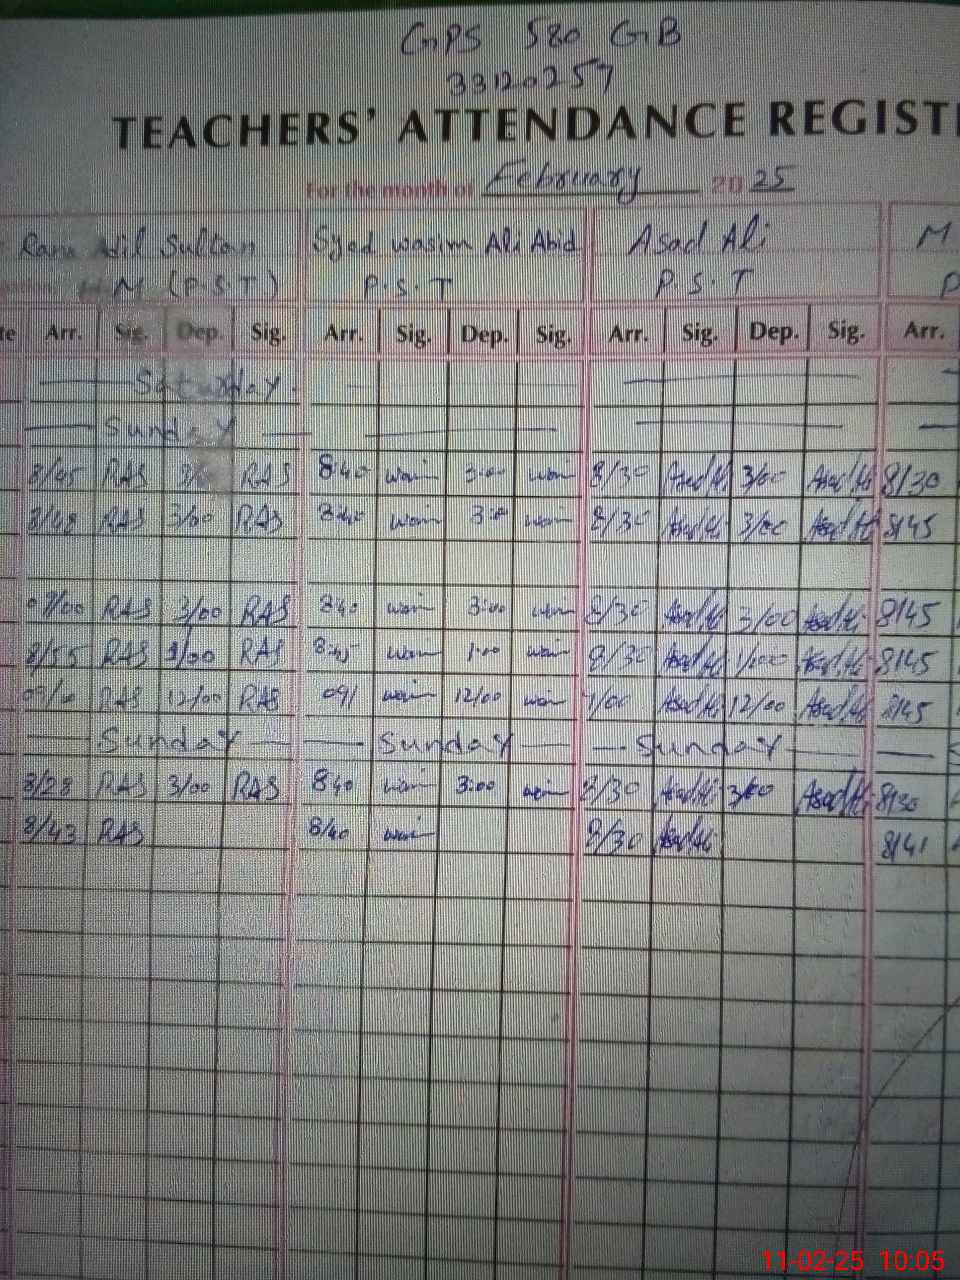 GPS 580 GB
33120257
TEACHERS' ATTENDANCE REGIST
For the month of February 2025
Rana Adil Sultan Syed wasim Ali Abid Asad Ali M
M (P.S.T) P.S.T P.S.T P
te Arr. Sig. Dep. Sig. Arr. Sig. Dep. Sig. Arr. Sig. Dep. Sig. Arr.
Saturday
Sunday
8/45 RAS RAS 8:40 3:00 8/30 Asad Ali 3/00 Asad Ali 8/30
8/48 RAS 3/00 RAS 8:40 3:00 8/30 Asad Ali 3/00 Asad Ali 8/45
09/00 RAS 3/00 RAS 840 3:00 8/30 Asad Ali 3/00 Asad Ali 8/45
8/55 RAS 1/00 RAS 8:45 1:00 8/30 Asad Ali Asad Ali 8/45
RAS 12/00 RAS 09/ 12/00 Asad Ali 12/00 Asad Ali 8/45
Sunday Sunday Sunday
8/28 RAS 3/00 RAS 840 3:00 8/30 Asad Ali 3/00 Asad Ali 8/30
8/43 RAS 8/40 8/30 Asad Ali 8/41
11-02-25 10:05